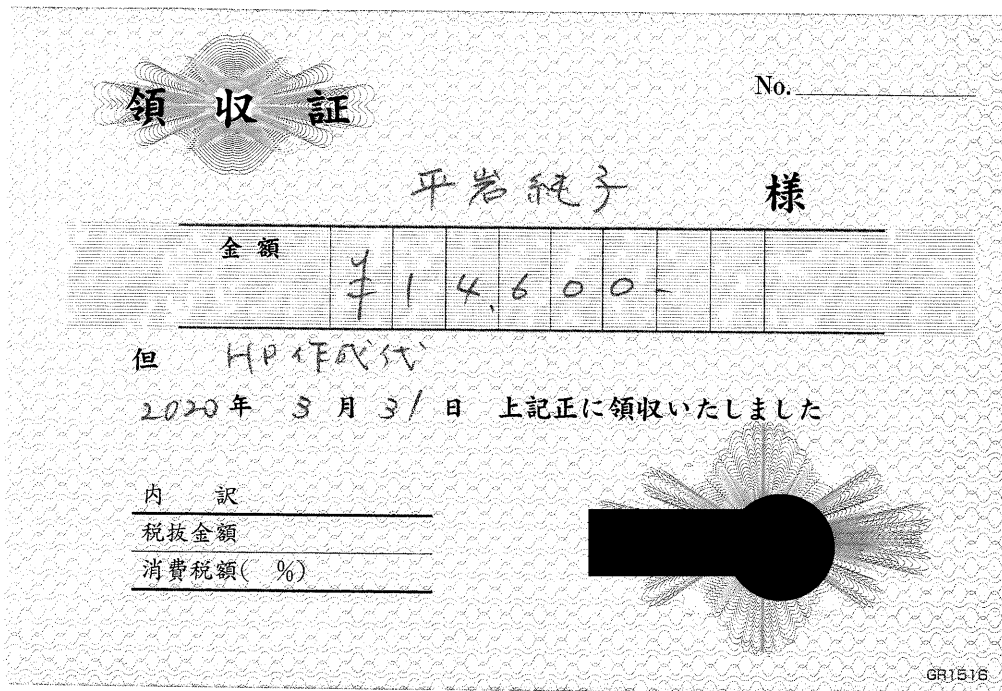 領収証
No.
平岩純子 様
金額 ¥14,600-
但 HP作成代
2020年 3月31日 上記正に領収いたしました
内訳
税抜金額
消費税額( %)
GR1516